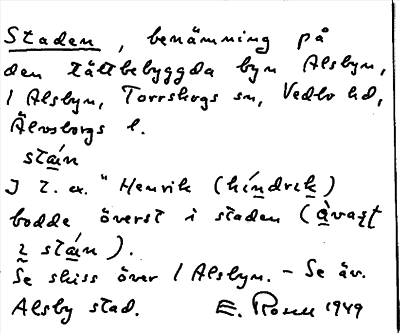 Staden, benämning på
den tättbebyggda byn Alsbyn,
1 Alsbyn, Torrskogs sn, Vedbo hd,
Älvsborgs l.
stán
I t. ex. "Henrik (híndrik)
bodde överst i staden (
i stán).
Se skiss över 1 Alsbyn. - Se äv.
Alsby stad. E. Rosell 1949